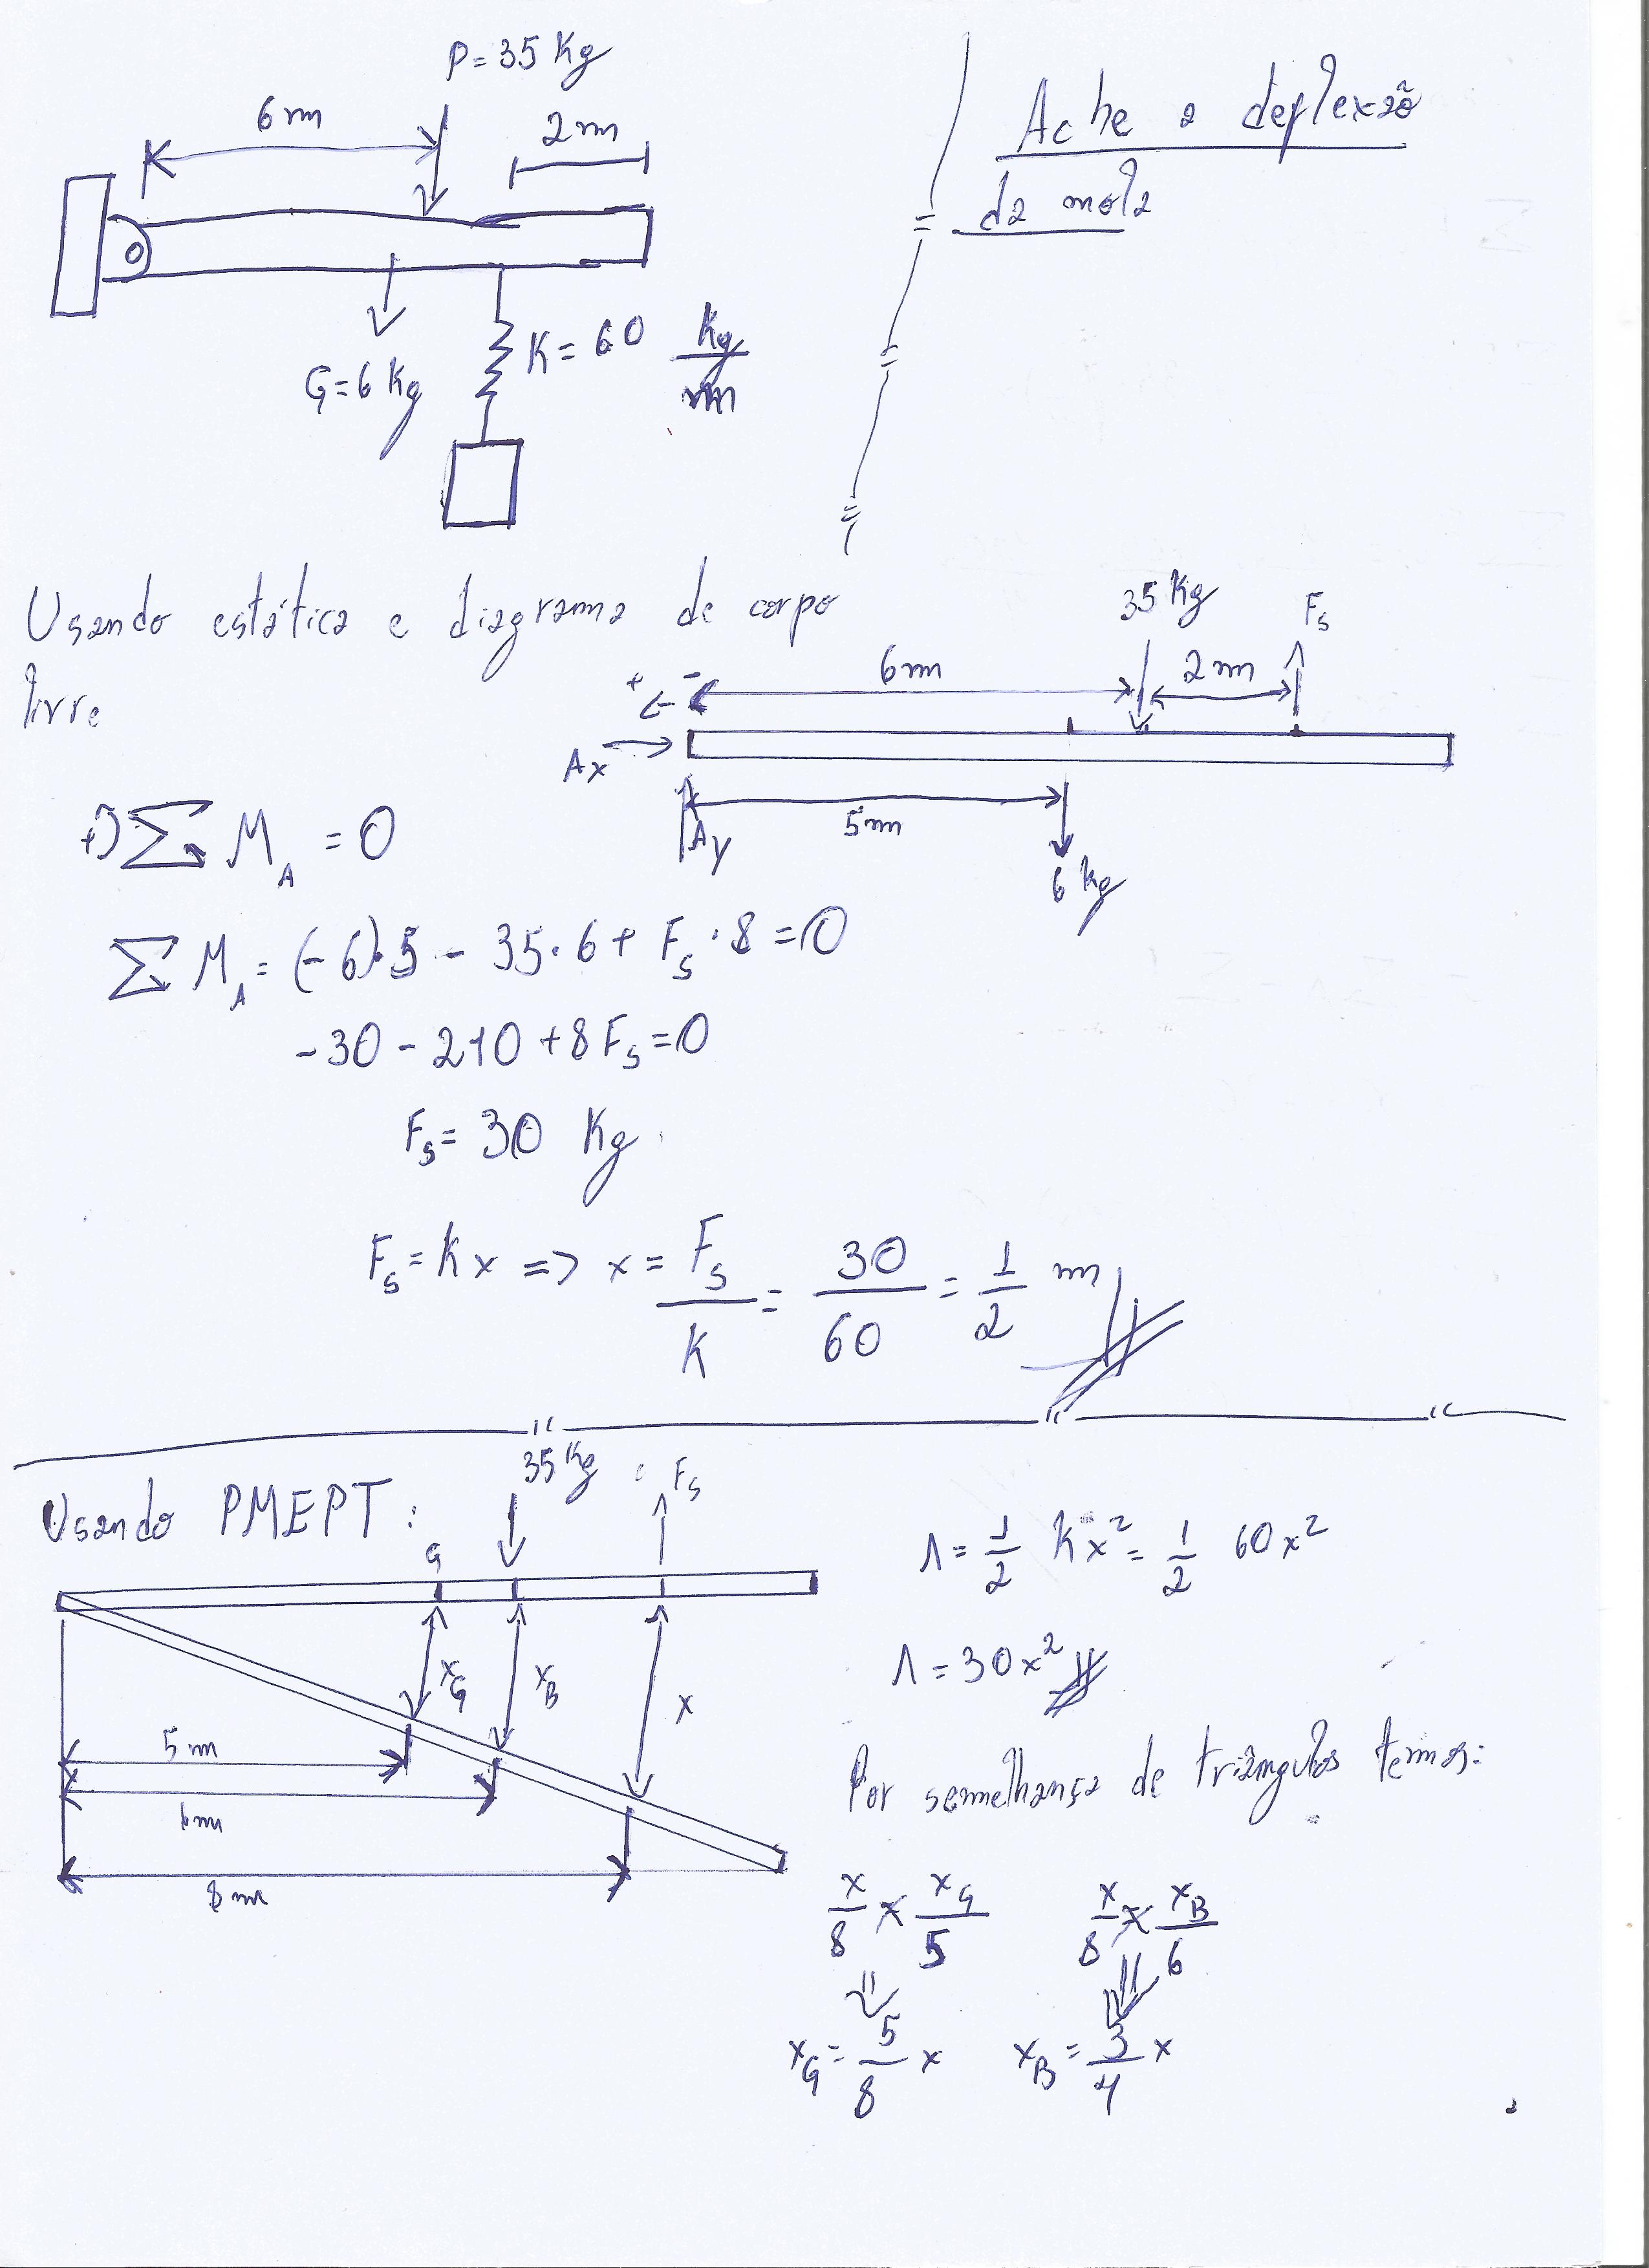 P=35 Kg
6m
2m
Ache a deflexão
da mola
G=6 Kg
K=60 Kg/m
Usando estática e diagrama de corpo
livre
35 Kg
Fs
6m
2m
+ -
Ax
Ay
5m
6 kg
+) Σ M_A = 0
Σ M_A = (-6)·5 - 35·6 + Fs·8 = 0
-30 - 210 + 8Fs = 0
Fs = 30 Kg
Fs = Kx => x = Fs/K = 30/60 = 1/2 m
Usando PMEPT:
35 Kg
Fs
G
xG
xB
x
5m
6m
8m
Λ = 1/2 Kx² = 1/2 60x²
Λ = 30x²
Por semelhança de triângulos temos:
x/8 × xG/5
x/8 × xB/6
xG = 5/8 x
xB = 3/4 x